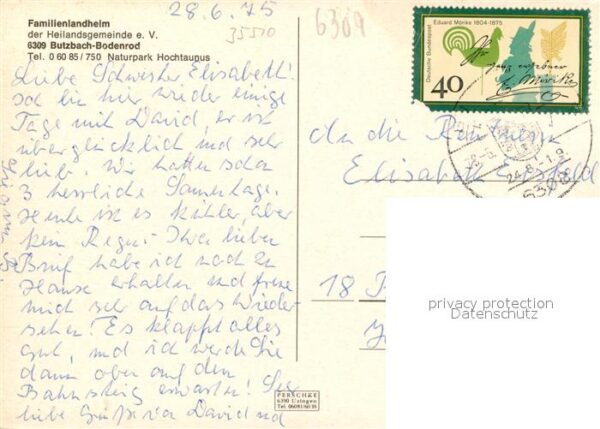 Familienlandheim
der Heilandsgemeinde e. V.
6309 Butzbach-Bodenrod
Tel. 0 60 85 / 750 Naturpark Hochtaunus
28.6.75
35510
6309
Deutsche Bundespost
Eduard Mörike 1804-1875
40
E. Mörike
6308
Liebe Schwester Elisabeth!
bin hier wieder einige
Tage mit David, er ist
überglücklich und sehr
lieb. Wir hatten schon
3 herrliche Sonnentage.
Heute ist es kühler, aber
kein Regen. Ihren lieben
Brief habe ich noch zu
Hause erhalten und freue
mich sehr auf das Wieder-
sehen! Es klappt alles
gut, und ich werde Sie
dann oben auf dem
Bahnsteig erwarten!
liebe Grüße von David und
An die
Elisabeth
18
privacy protection
Datenschutz
PERSCHKE
6390 Usingen
Tel. 06081/60 95